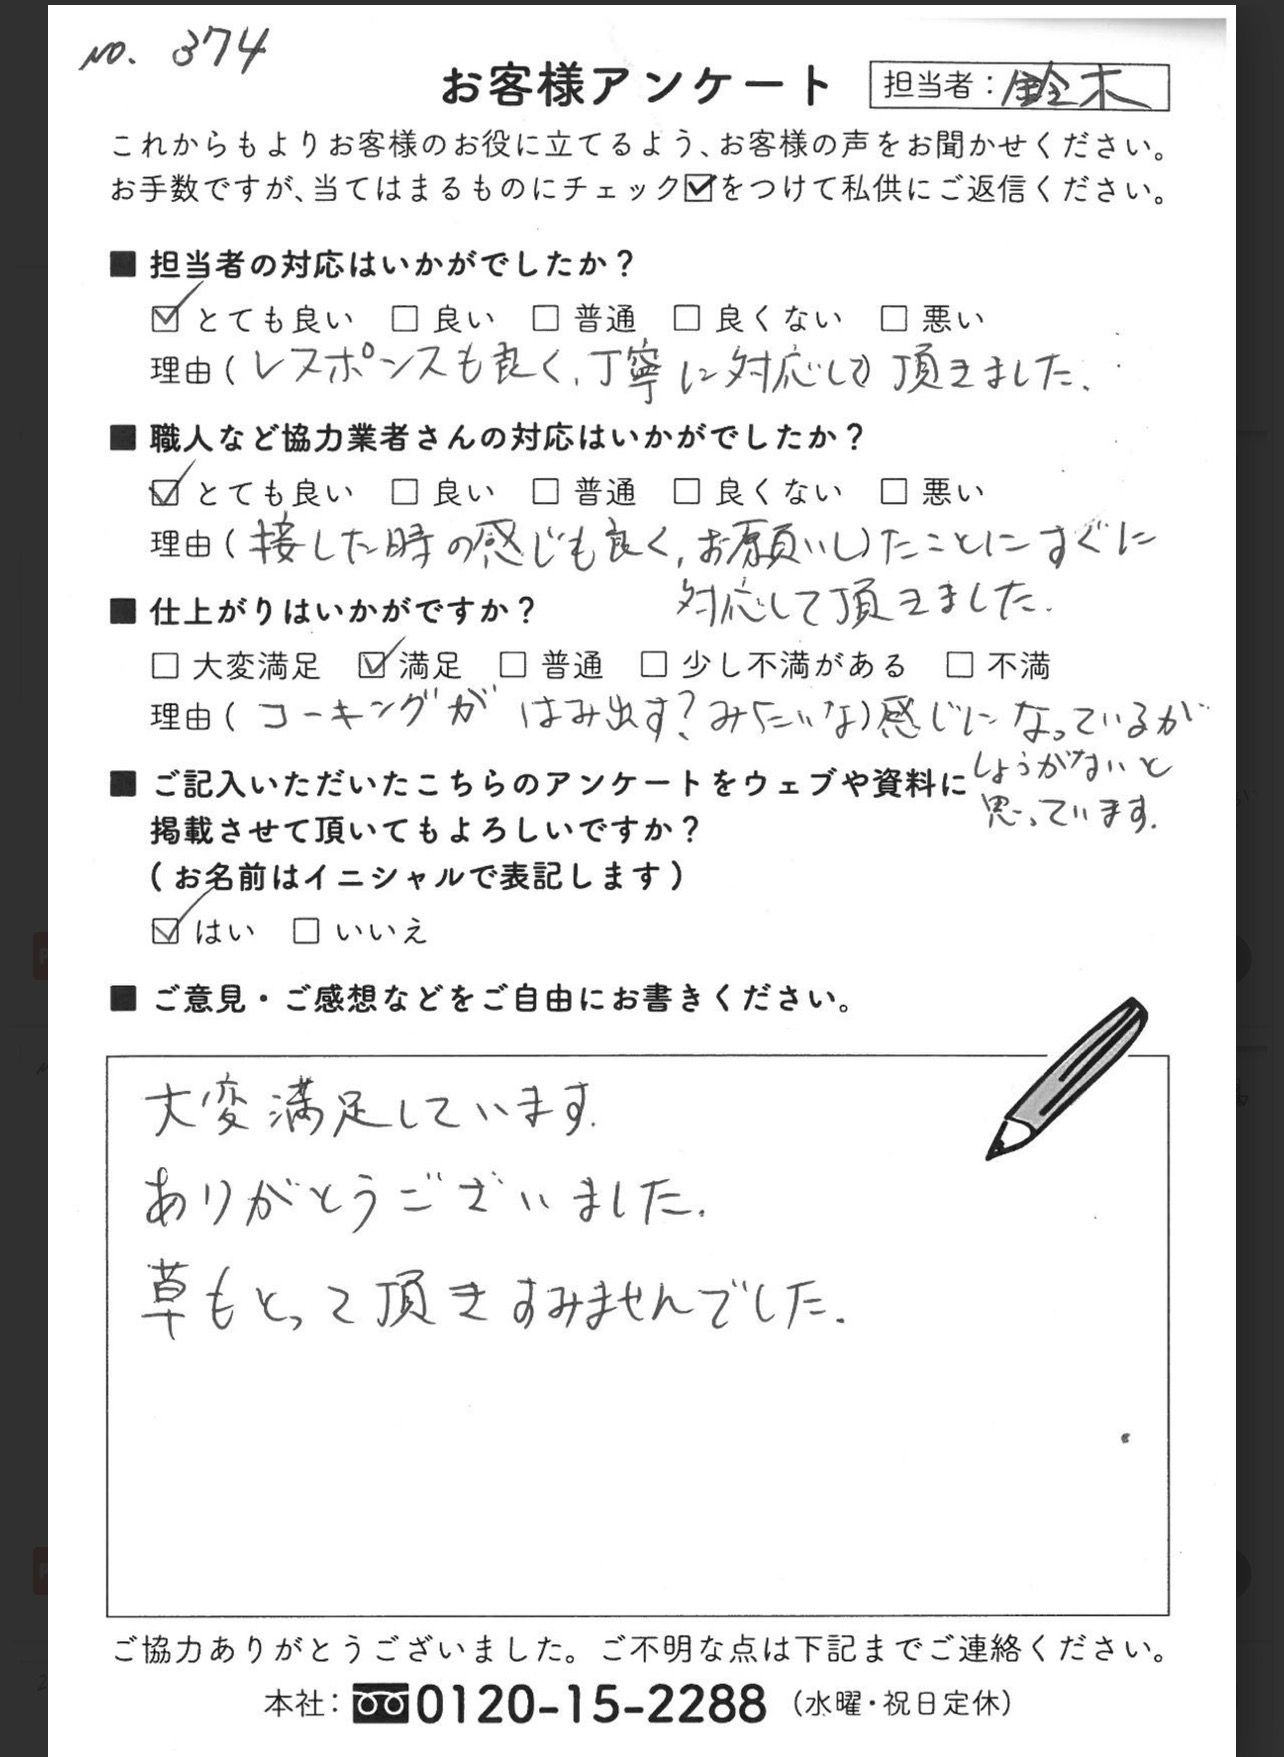 no. 374
お客様アンケート
担当者：鈴木
これからもよりお客様のお役に立てるよう、お客様の声をお聞かせください。
お手数ですが、当てはまるものにチェック☑をつけて私供にご返信ください。
■ 担当者の対応はいかがでしたか？
☑ とても良い □ 良い □ 普通 □ 良くない □ 悪い
理由（レスポンスも良く、丁寧に対応して頂きました、
■ 職人など協力業者さんの対応はいかがでしたか？
☑ とても良い □ 良い □ 普通 □ 良くない □ 悪い
理由（接した時の感じも良く、お願いしたことにすぐに
対応して頂きました.
■ 仕上がりはいかがですか？
□ 大変満足 ☑ 満足 □ 普通 □ 少し不満がある □ 不満
理由（コーキングがはみ出す？みたいな感じになっているが
しょうがないと
思っています.
■ ご記入いただいたこちらのアンケートをウェブや資料に
掲載させて頂いてもよろしいですか？
（お名前はイニシャルで表記します）
☑ はい □ いいえ
■ ご意見・ご感想などをご自由にお書きください。
大変満足しています.
ありがとうございました.
草もとって頂きすみませんでした.
ご協力ありがとうございました。ご不明な点は下記までご連絡ください。
本社：0120-15-2288（水曜・祝日定休）